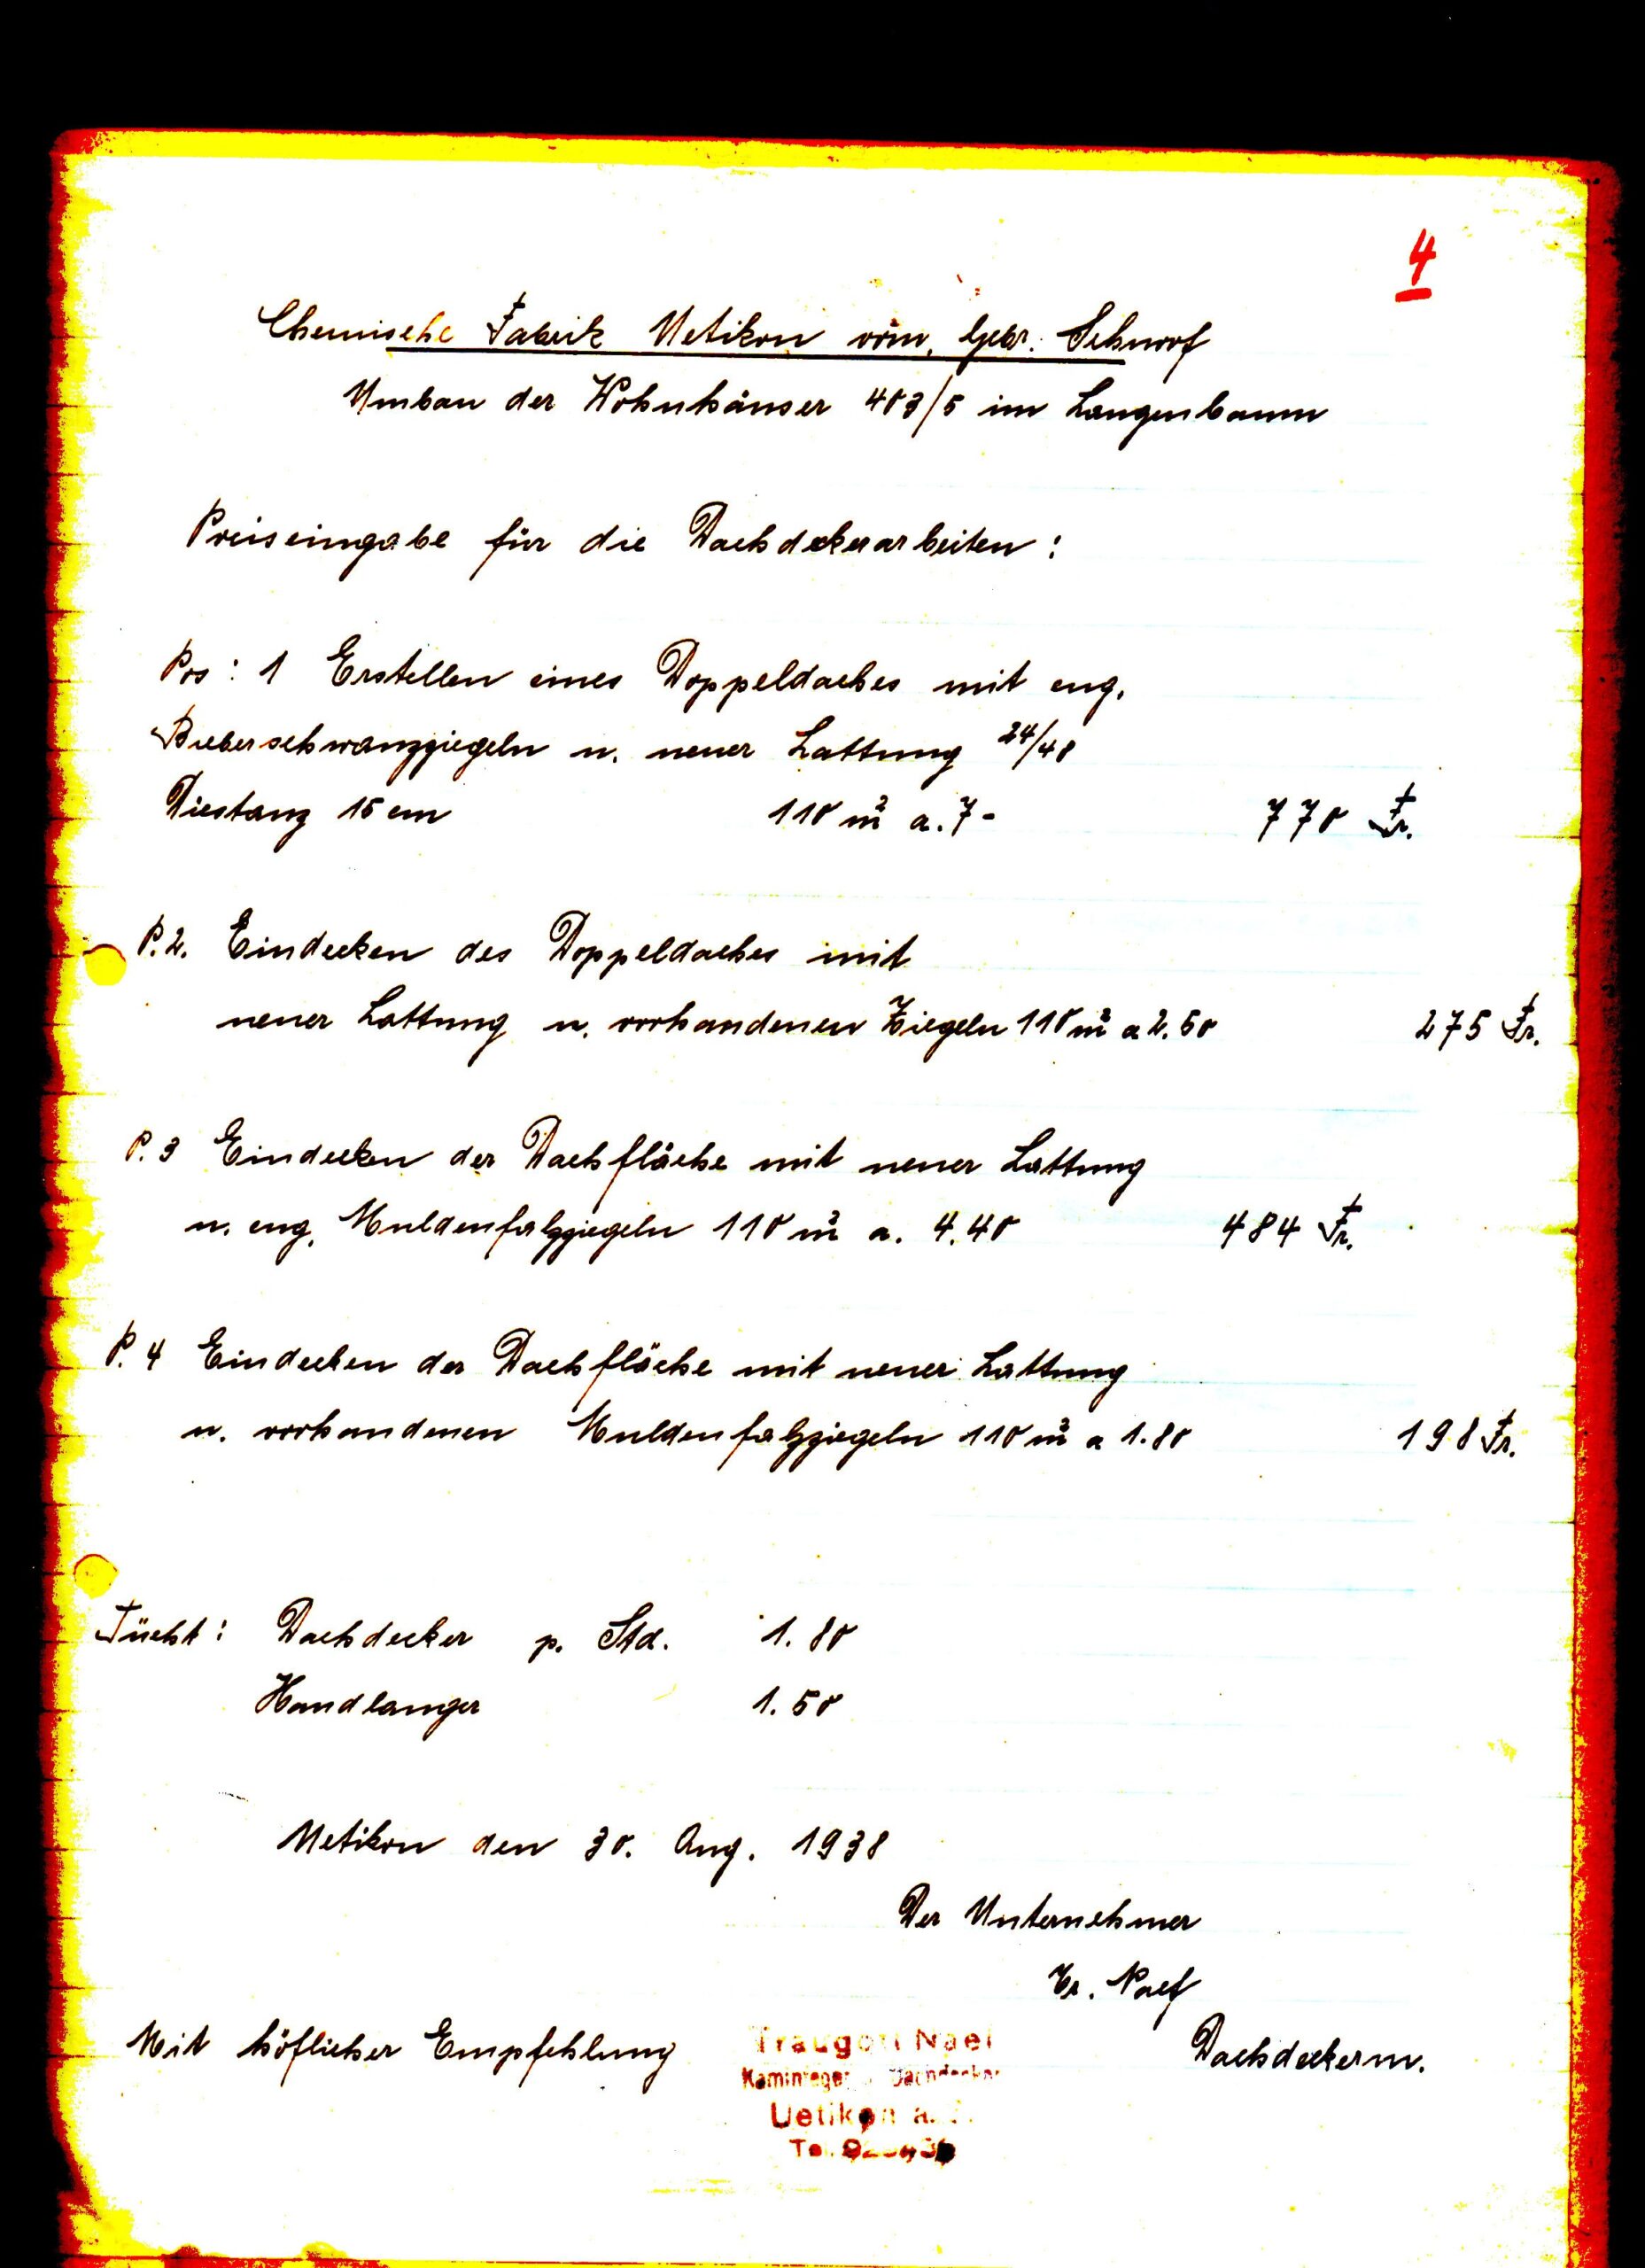 4
Chemische Fabrik Uetikon vorm. Gebr. Schnorf
Umbau der Wohnhäuser 403/5 im Langenbaum
Preiseingabe für die Dachdekerarbeiten:
Pos: 1 Erstellen eines Doppeldaches mit eng.
Bieberschwanzziegeln u. neuer Lattung 24/48
Diestanz 15 cm 110 m² a. 7- 770 Fr.
P. 2. Eindecken des Doppeldaches mit
neuer Lattung u. vorhandenen Ziegeln 110 m² a 2.50 275 Fr.
P. 3 Eindecken der Dachfläche mit neuer Lattung
u. eng. Muldenfalzziegeln 110 m² a. 4.40 484 Fr.
P. 4 Eindecken der Dachfläche mit neuer Lattung
u. vorhandenen Muldenfalzziegeln 110 m² a 1.80 198 Fr.
Tücht: Dachdecker p. Std. 1.80
Handlanger 1.50
Uetikon den 30. Aug. 1938
Der Unternehmer
Tr. Naef
Mit höflicher Empfehlung Dachdeckerm.
Traugott Naef
Kaminfeger Dachdecker
Uetikon a.
Tel.